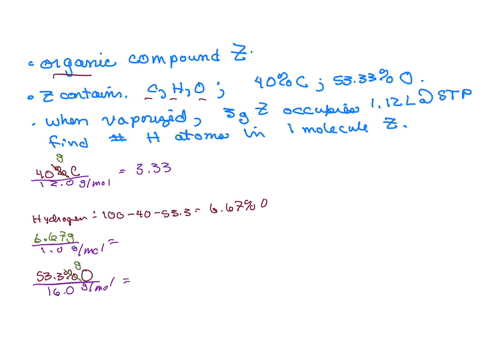 • organic compound Z.
• Z contains C, H, O ; 40% C ; 53.33% O.
• when vaporized, 3g Z occupies 1.12L @ STP
find # H atoms in 1 molecule Z.
g
40% C = 3.33
12.0 g/mol
Hydrogen: 100-40-53.3 = 6.67% O
6.67g =
1.0 g/mol
g
53.3% O =
16.0 g/mol